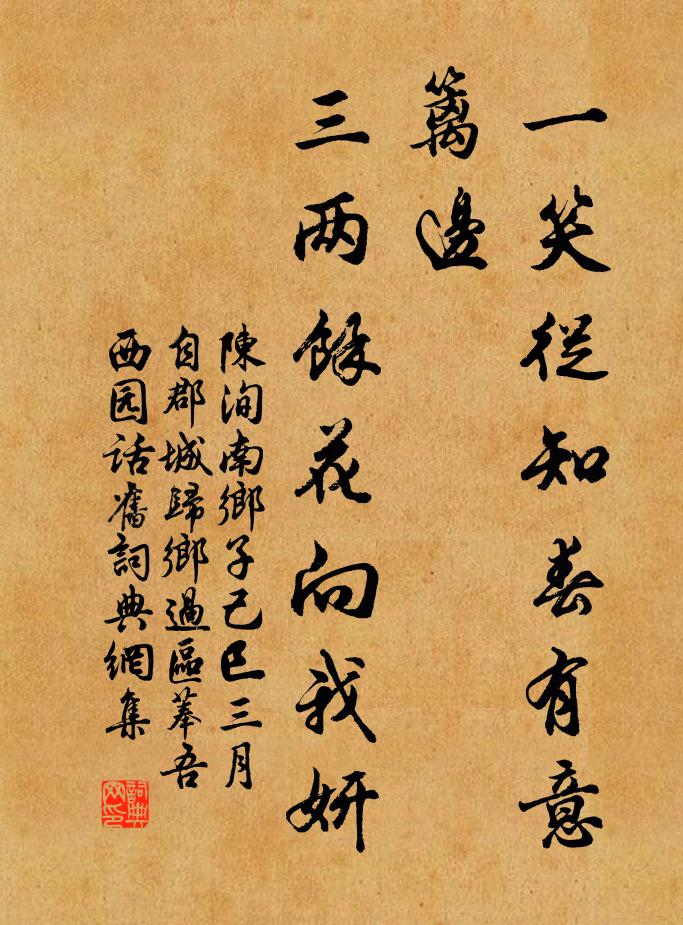 一笑從知春有意
籬邊
三两餘花向我妍
陳洵南鄉子己巳三月
自郡城歸鄉過區菶吾
西园話舊詞典網集
詞典
网印